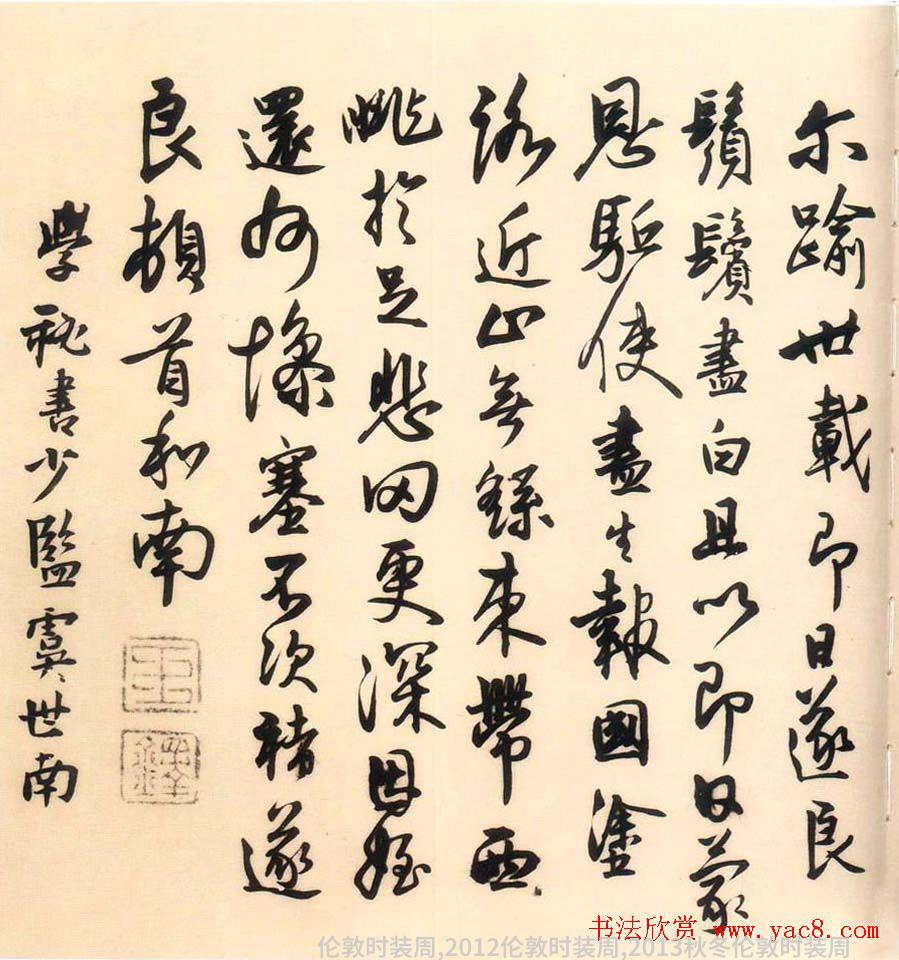 尓踰卅載即日遂良
鬚鬢盡白且以即日蒙
恩駈使盡生報國塗
路近止無繇束帶西
眺於邑悲罔更深因姪
還州慘塞不次褚遂
良頓首和南
學秘書少監虞世南
王
鐸
书法欣赏 www.yac8.com
伦敦时装周,2012伦敦时装周,2013秋冬伦敦时装周